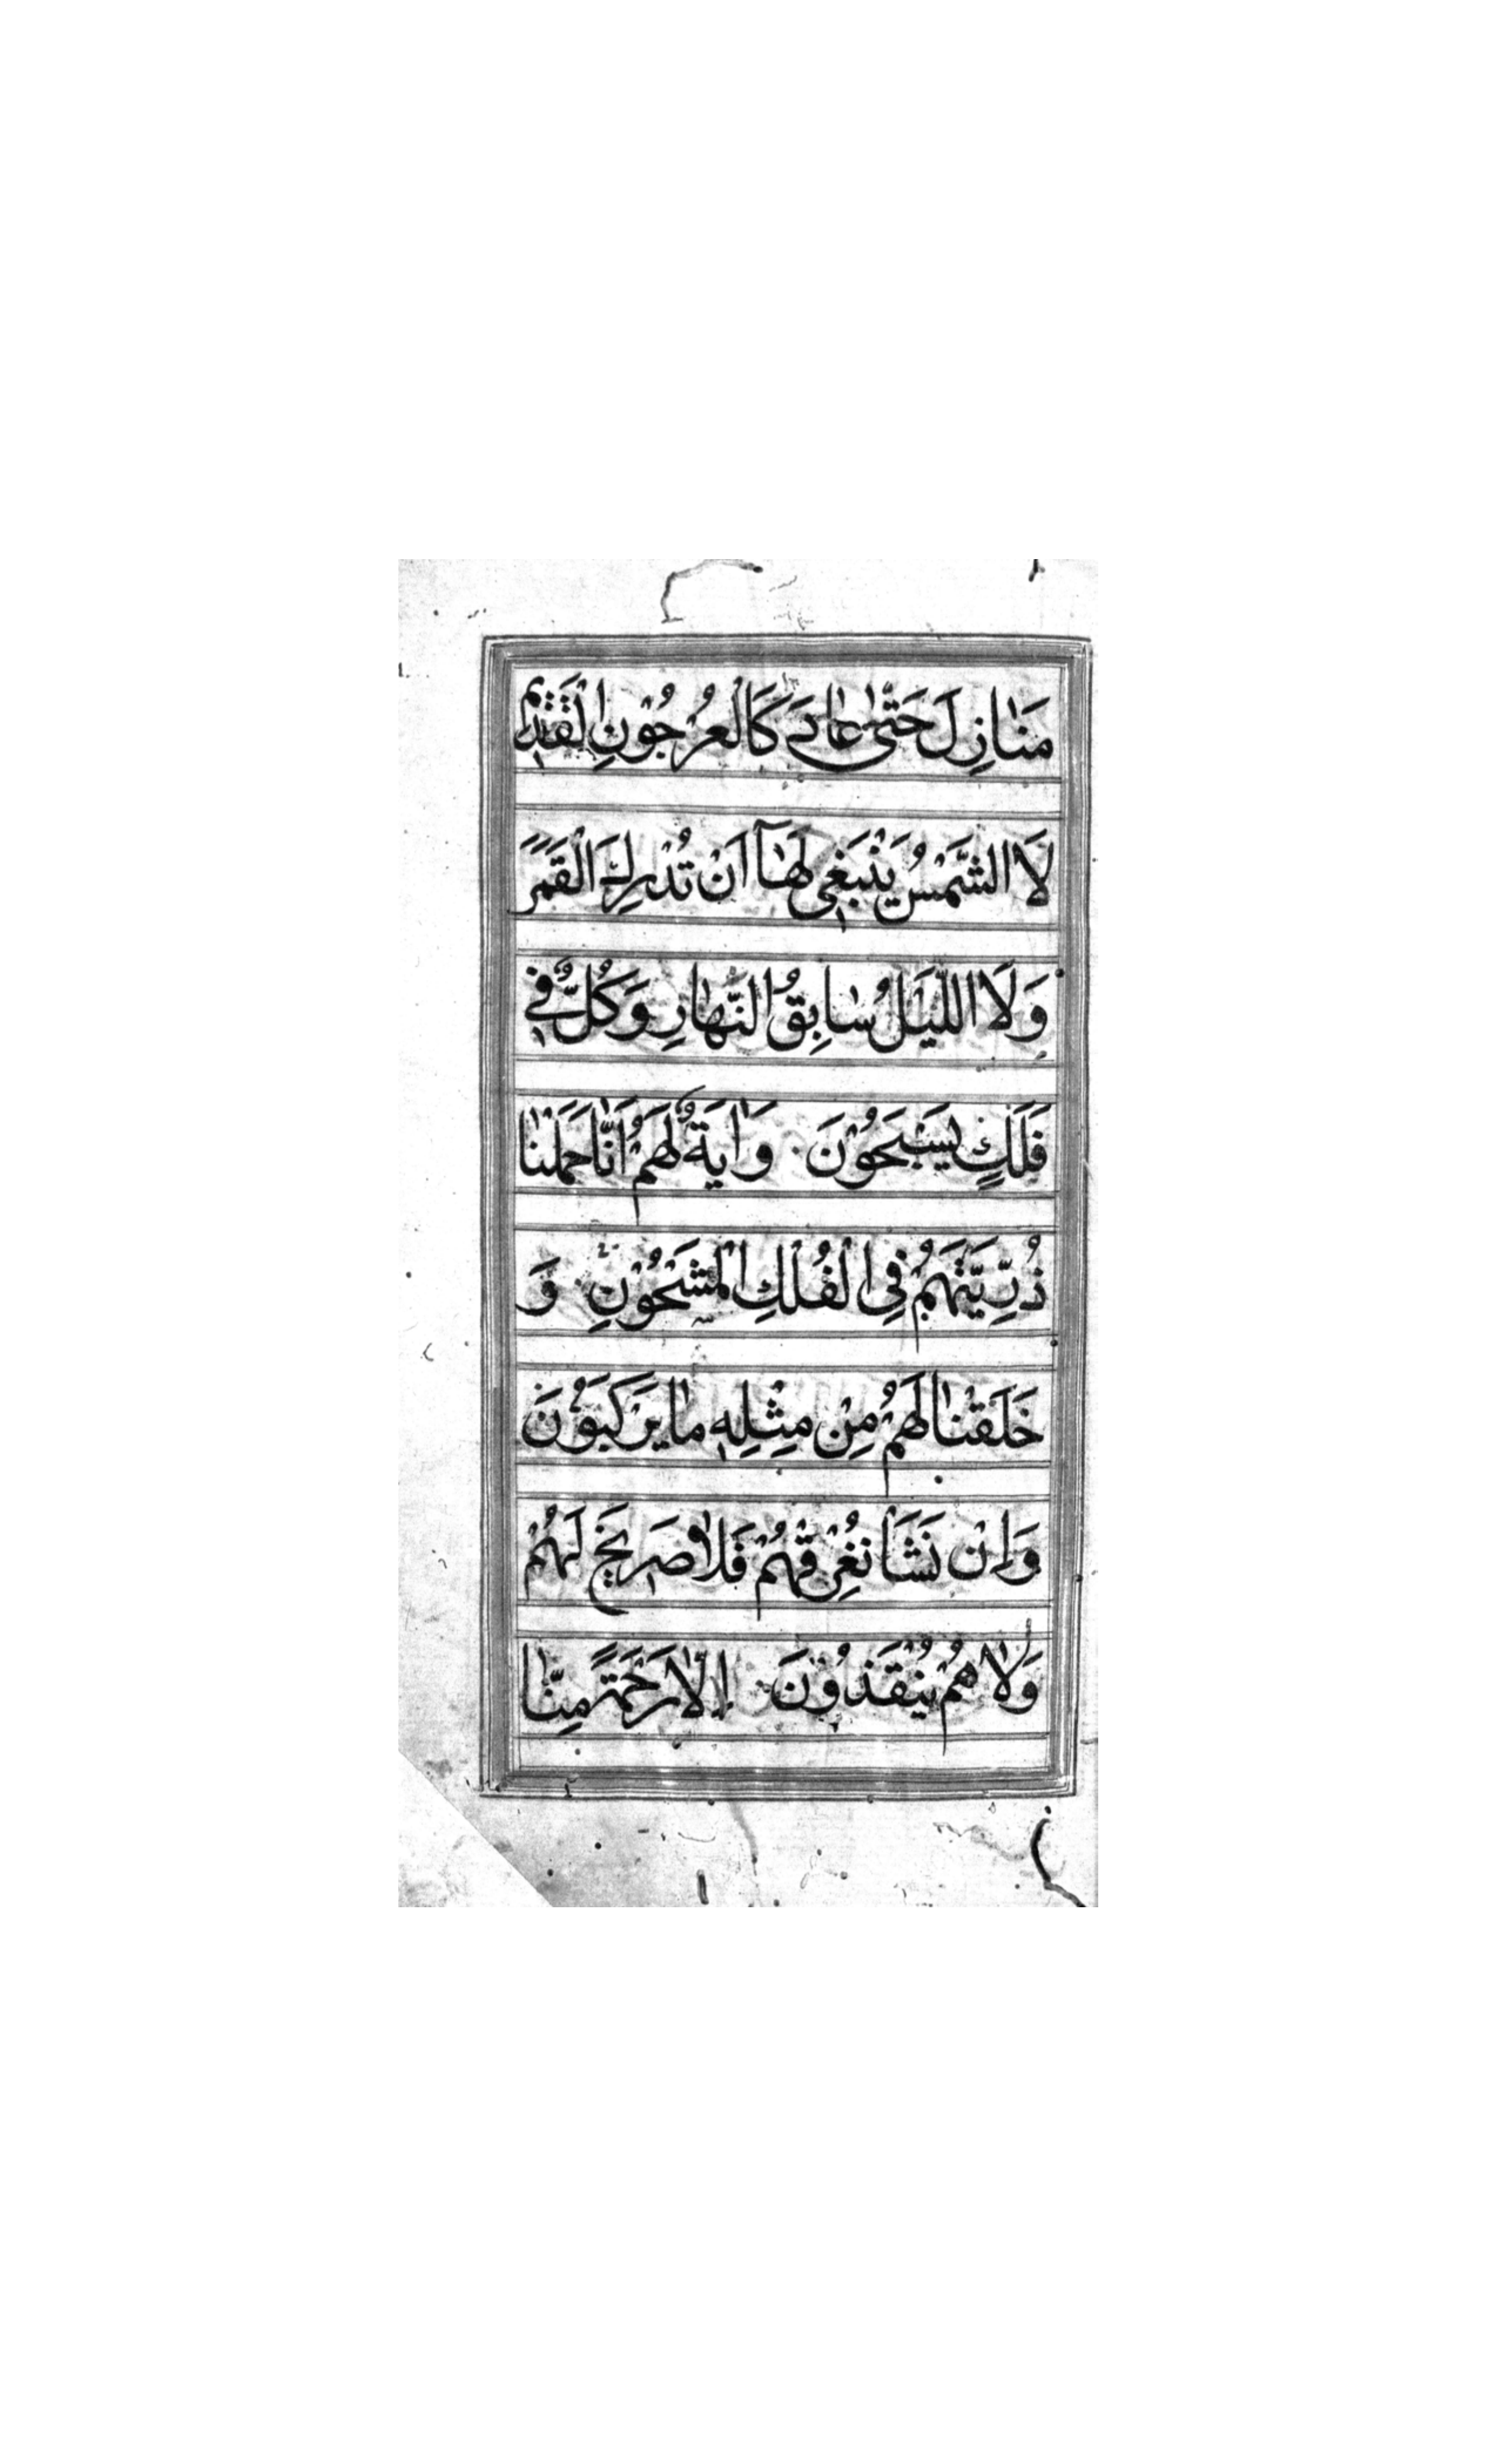 مَنَازِلَ حَتّٰى عَادَ كَالْعُرْجُوْنِ الْقَدِيْمِ
لَا الشَّمْسُ يَنْبَغِي لَهَآ اَنْ تُدْرِكَ الْقَمَرَ
وَلَا اللَّيْلُ سَابِقُ النَّهَارِ وَكُلٌّ فِي
فَلَكٍ يَسْبَحُوْنَ وَاٰيَةٌ لَهُمْ اَنَّا حَمَلْنَا
ذُرِّيَّتَهُمْ فِي الْفُلْكِ الْمَشْحُوْنِ وَ
خَلَقْنَا لَهُمْ مِنْ مِثْلِهٖ مَا يَرْكَبُوْنَ
وَاِنْ نَشَاْ نُغْرِقْهُمْ فَلَا صَرِيْخَ لَهُمْ
وَلَا هُمْ يُنْقَذُوْنَ اِلَّا رَحْمَةً مِنَّا